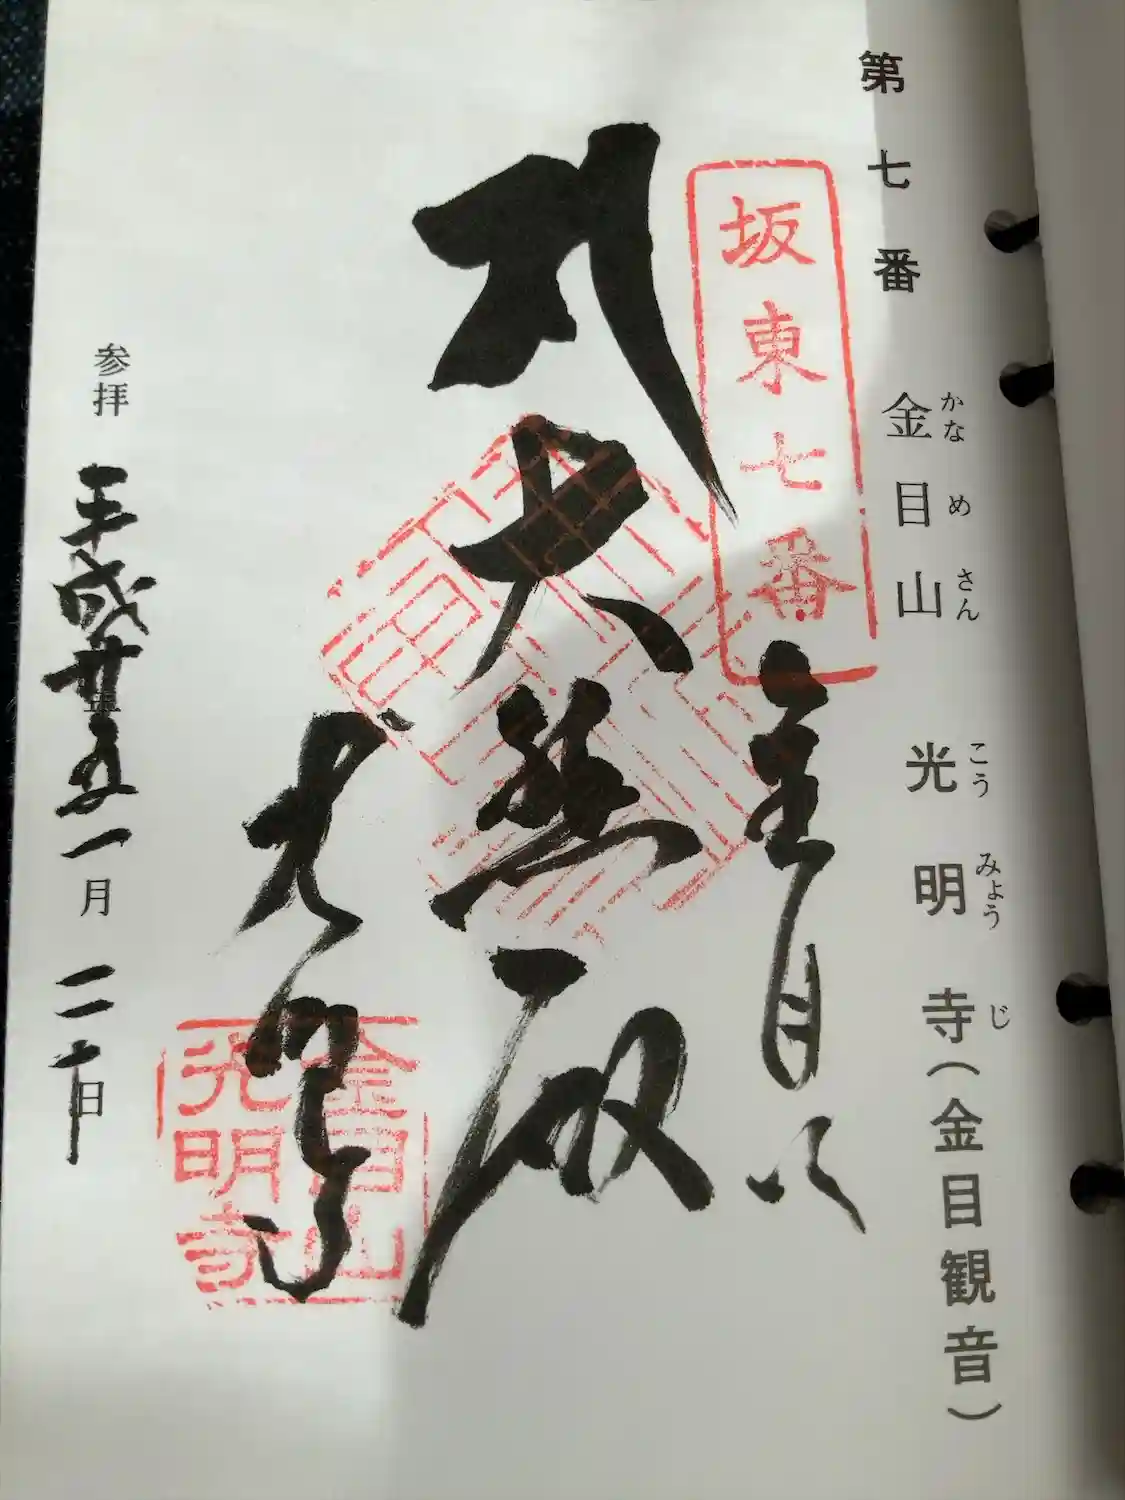 第七番 金目山 光明寺(金目観音)
かなめさん こうみょうじ
坂東七番
金目山
大悲殿
光明寺
金目山
光明寺
参拝 平成廿五年一月二十日